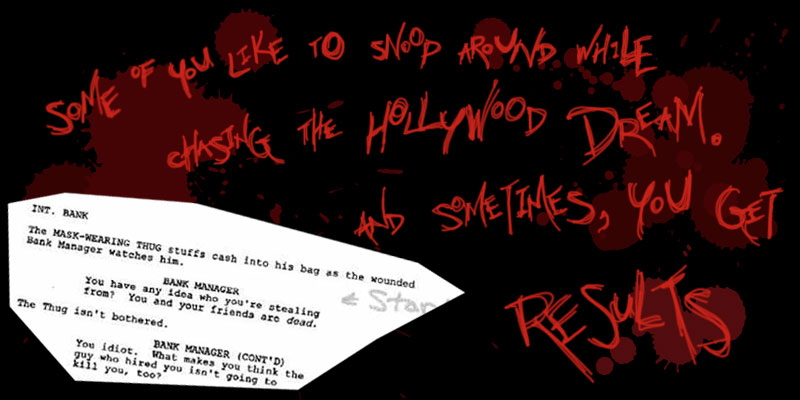 SOME OF YOU LIKE TO SNOOP AROUND WHILE
CHASING THE HOLLYWOOD DREAM.
AND SOMETIMES, YOU GET
RESULTS
INT. BANK
The MASK-WEARING THUG stuffs cash into his bag as the wounded
Bank Manager watches him.
BANK MANAGER
You have any idea who you're stealing
from? You and your friends are dead.
The Thug isn't bothered.
BANK MANAGER (CONT'D)
You idiot. What makes you think the
guy who hired you isn't going to
kill you, too?